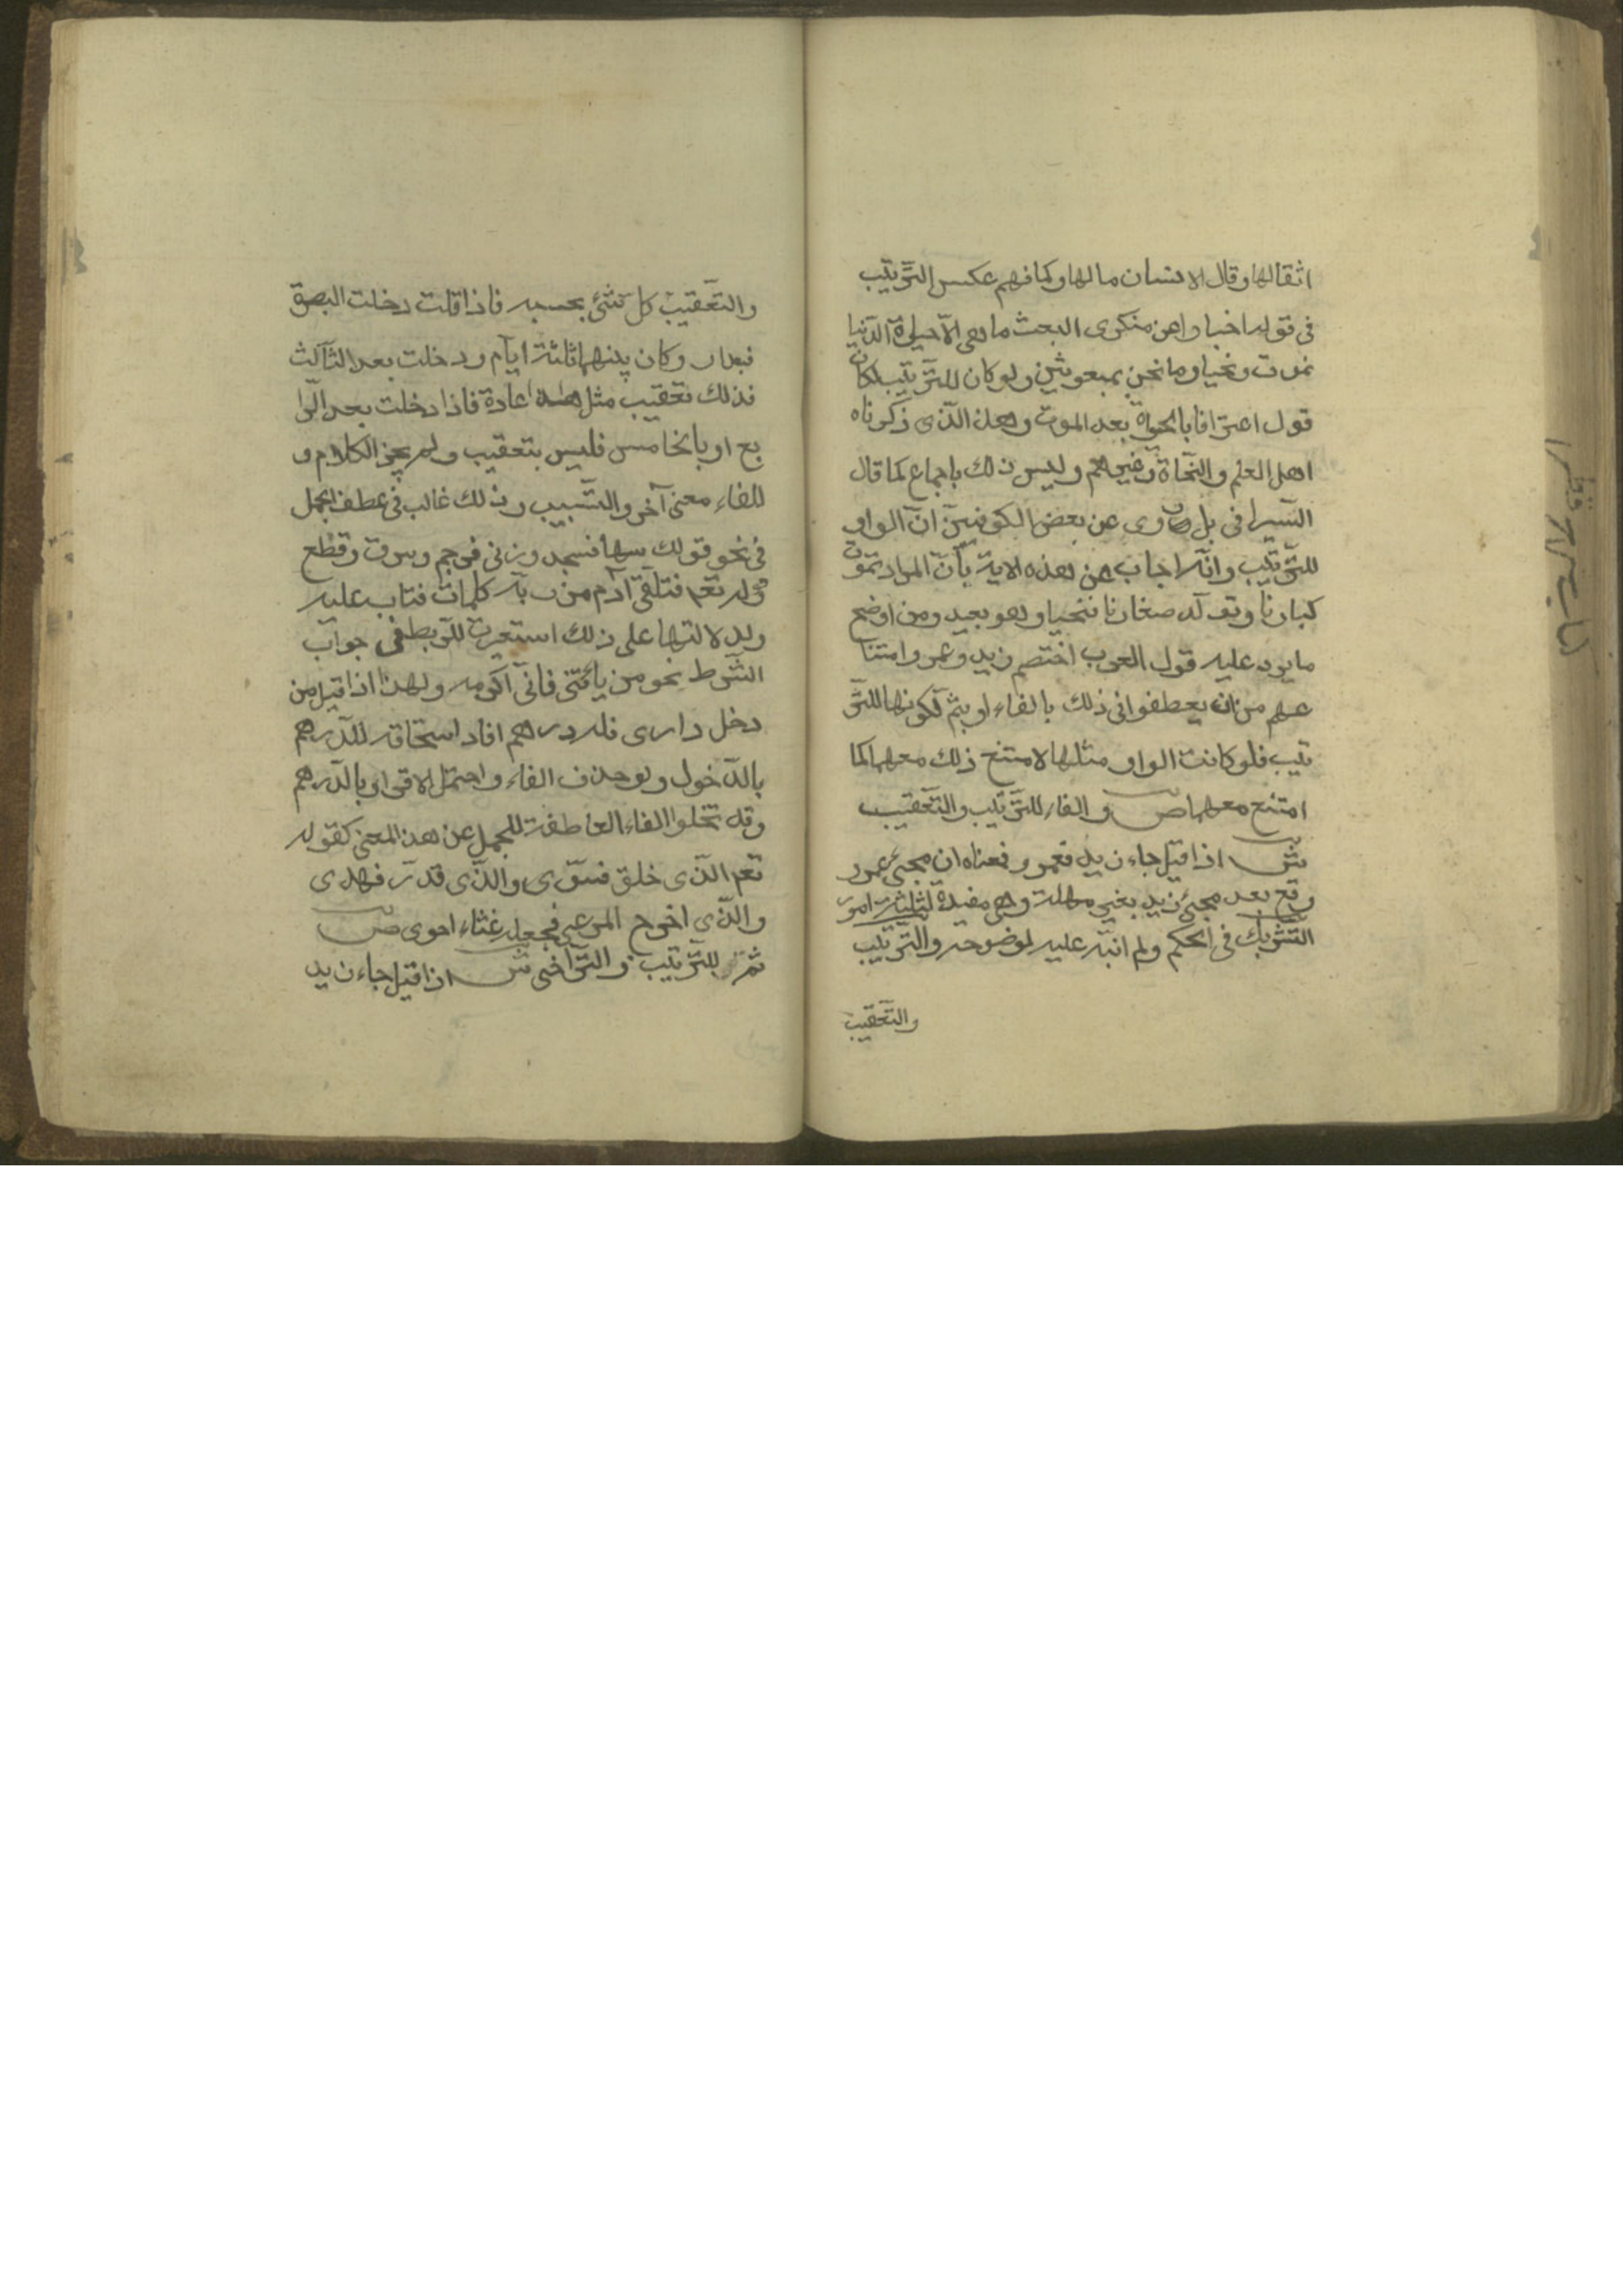 اثقالها وقال الانسان مالها وكما فهم عكس الترتيب
فى قوله اخبارا عن منكرى البعث ما هى الّا حيوة الدّنيا
نموت ونحيا وما نحن بمبعوثين ولو كان للترتيب لكان
قول اعترافا بالحيوة بعد الموت وهذا الّذى ذكرناه
اهل العلم والنّحاة وغيرهم وليس ذلك باجماع كما قال
السّيرافى بل روى عن بعض الكوفيين انّ الواو
للتّرتيب وانّه اجاب عن هذه الاية بأنّ المراد تموت
كبارنا وتولد صغارنا فنحيا وهو بعيد ومن اوضح
ما يرد عليه قول العرب اختصم زيد وعمرو امتنا
عهم من ان يعطفوا فى ذلك بالفاء او بثم لكونها للتّر
تيب فلو كانت الواو مثلها لامتنع ذلك معها كما
امتنع معهما ص والفاء للتّرتيب والتّعقيب
ش اذا قيل جاء زيد فعمرو فمعناه ان مجئ عمرو
وقع بعد مجئ زيد بغير مهلة وهى مفيدة لثلثة امور
التشريك فى الحكم ولم انبّه عليه لوضوحه والتّرتيب
والتّعقيب
والتّعقيب كل شئ بحسبه فاذا قلت دخلت البصرة
فبغداد وكان بينهما ثلثة ايّام ودخلت بعد الثّالث
فذلك تعقيب مثل هذا عادة فاذا دخلت بعد الرّا
بع او بالخامس فليس بتعقيب ولم يجز الكلام و
للفاء معنى آخر والتّسبيب وذلك غالب فى عطف الجمل
فى نحو قولك سها فسجد وزنى فرجم وسرق وقطع
قوله تعم فتلقّى آدم من ربّه كلمات فتاب عليه
ولدلالتها على ذلك استعيرت للرّبط فى جواب
الشّرط نحو من يأتنى فانّى اكرمه ولهذا اذا قيل من
دخل دارى فله درهم افاد استحقاقه للدّرهم
بالدّخول ولو حذف الفاء واحتمل الاقرار بالدّرهم
وقد تخلوا الفاء العاطفة للجمل عن هذا المعنى كقوله
تعم الّذى خلق فسوّى والّذى قدّر فهدى
والّذى اخرج المرعى فجعله غثاء احوى ص
ثمّ للترتيب والتّراخى ش اذا قيل جاء زيد